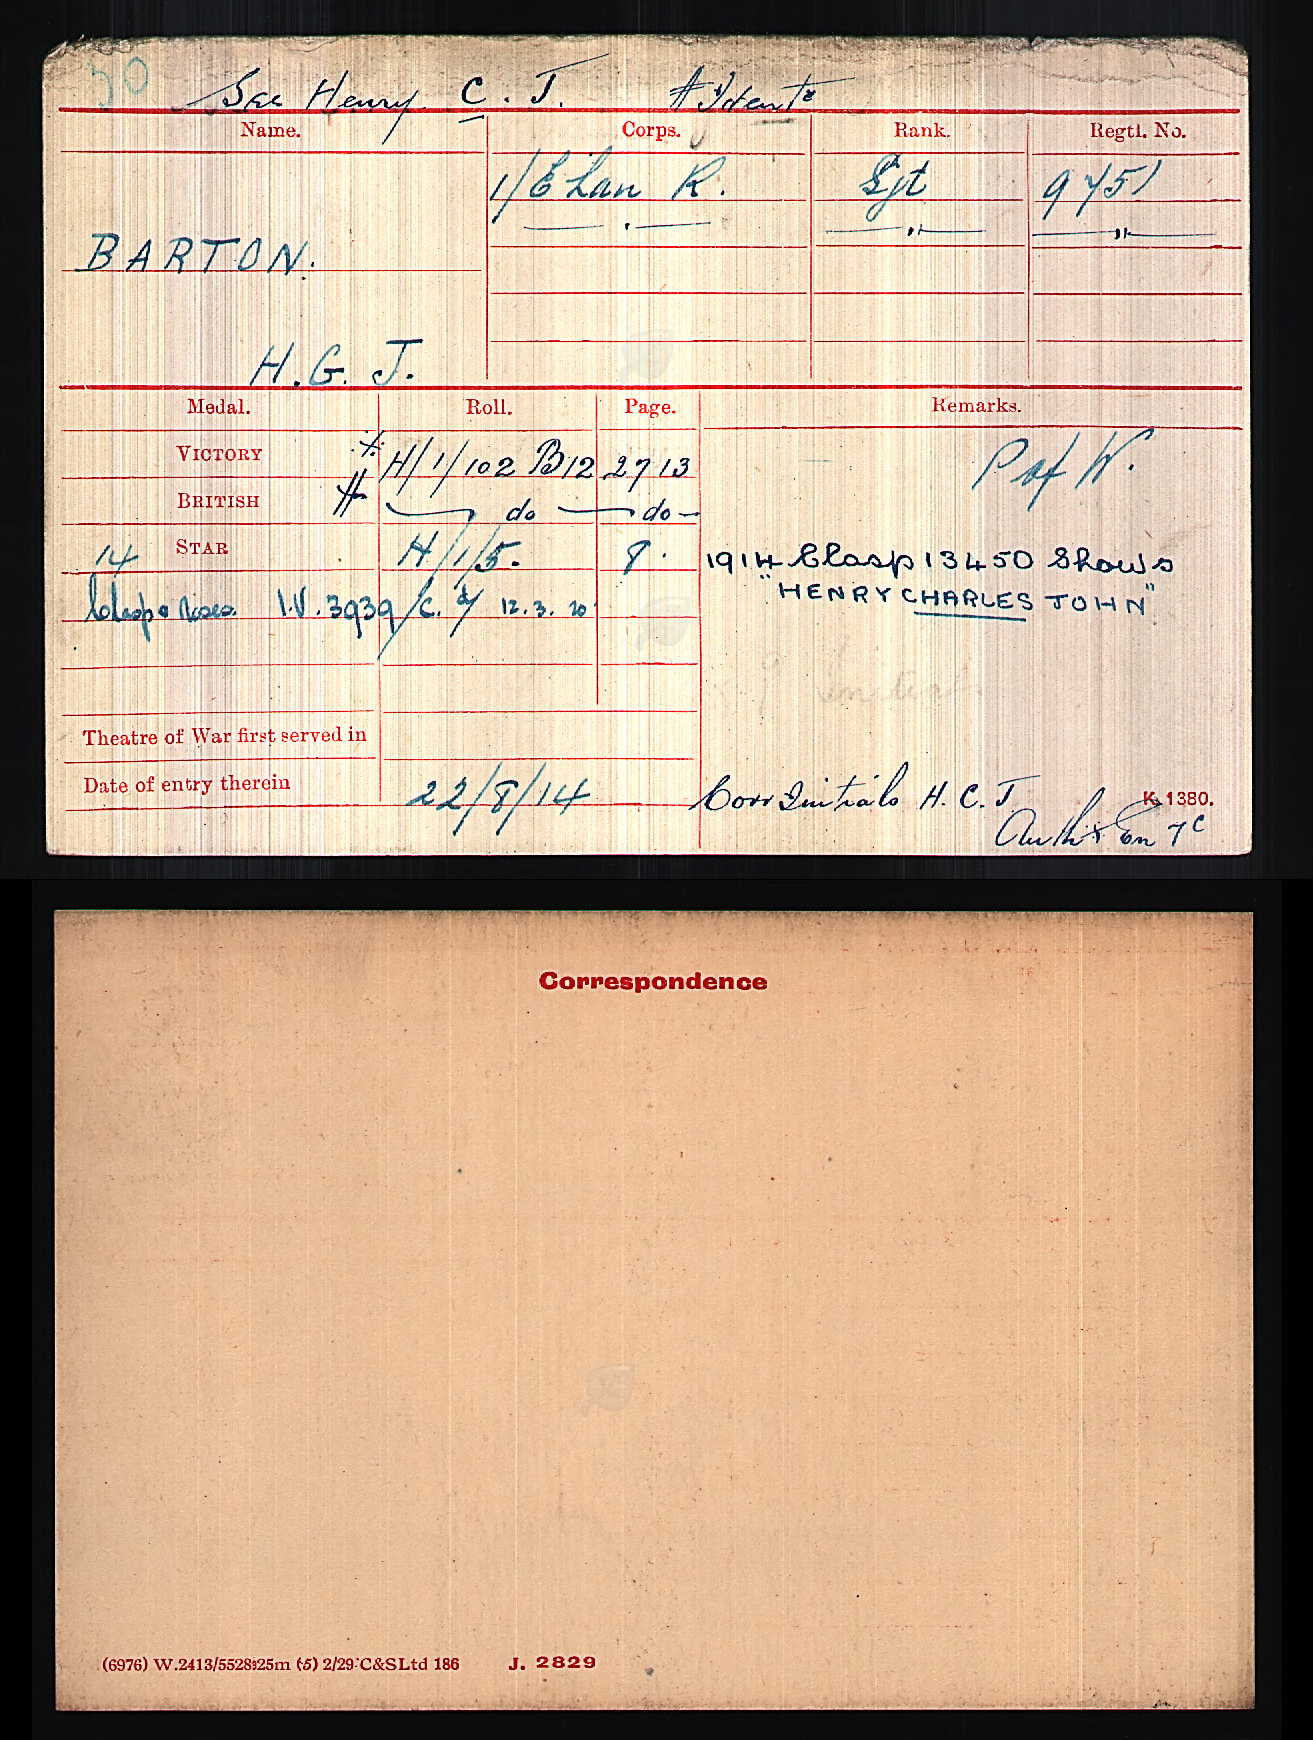 50
See Henry C. J. A Ident^s
Name. Corps. Rank. Regtl. No.
1/E Lan R. Sjt 9751
—"— —"— —"—
BARTON.
H.G. J.
Medal. Roll. Page. Remarks.
VICTORY H/1/102 B12 2713 P of W.
BRITISH do do
14 STAR H/1/5. 8. 1914 Clasp 13450 Shows
"HENRY CHARLES JOHN"
Clasp & Roses. I.V. 3939/C. d/ 12.3.20
Theatre of War first served in
Date of entry therein 22/8/14 Corr Initials H. C. J
K. 1380.
7C
Correspondence
(6976) W.2413/5528 25m (5) 2/29 C&SLtd 186 J. 2829